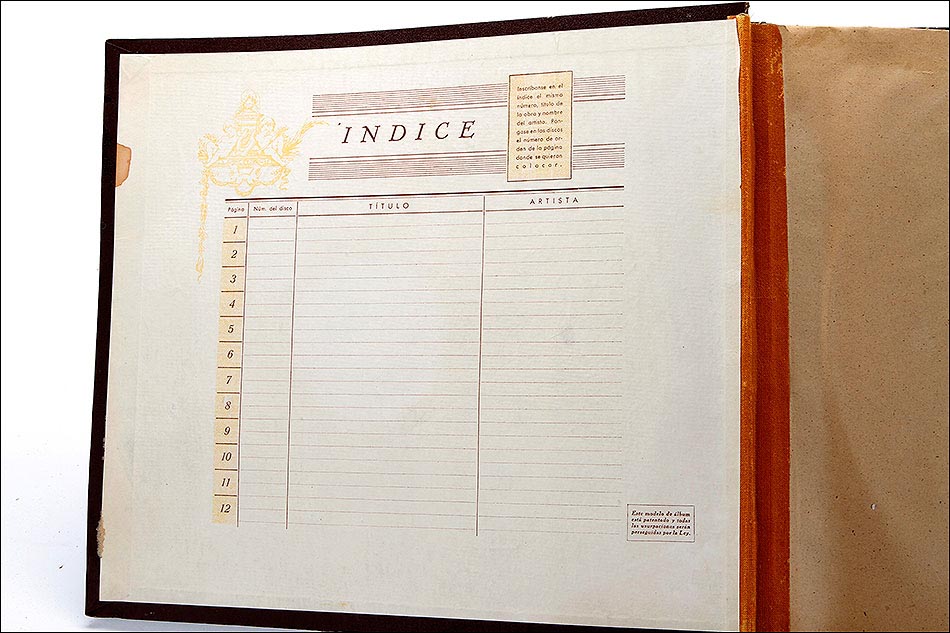 ÍNDICE
Inscríbanse en el
índice el mismo
número, título de
la obra y nombre
del artista. Pón-
gase en los discos
el número de or-
den de la página
donde se quieran
colocar.
Página Núm. del disco TÍTULO ARTISTA
1
2
3
4
5
6
7
8
9
10
11
12
Este modelo de álbum
está patentado y todas
las usurpaciones serán
perseguidas por la Ley.